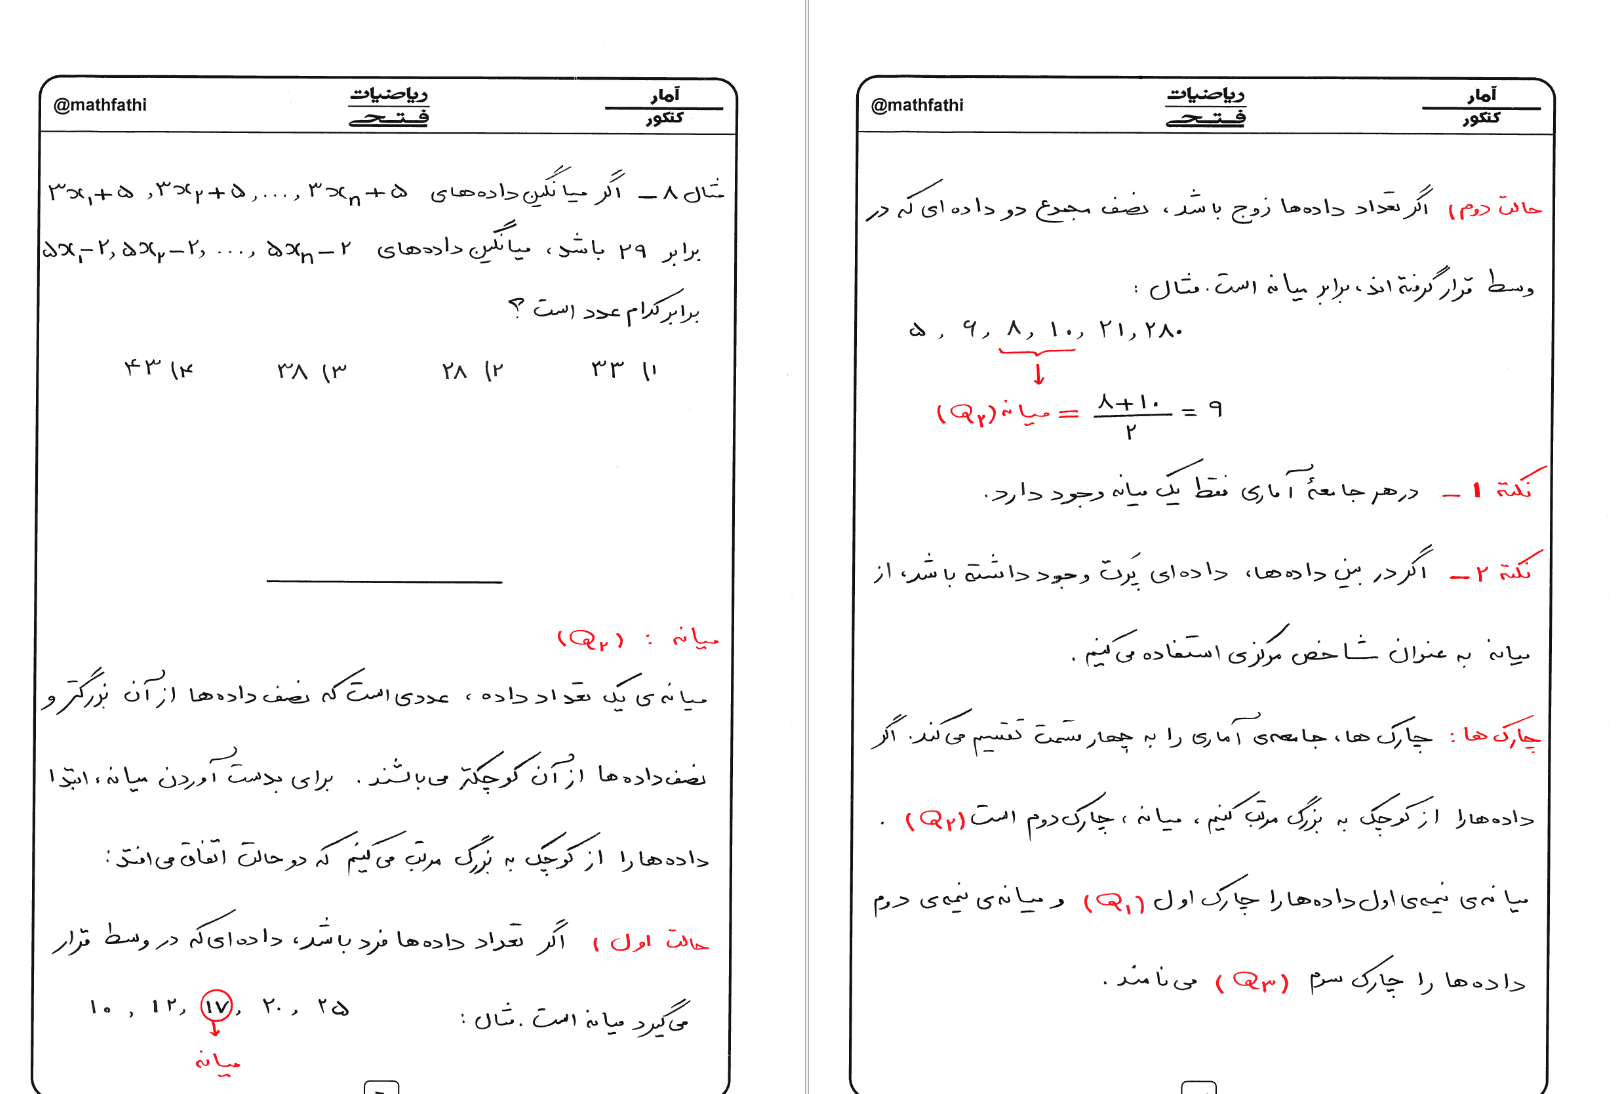 آمار
کنکور
ریاضیات
فتحی
@mathfathi
حالت دوم) اگر تعداد داده‌ها زوج باشد، نصف مجموع دو داده ای که در
وسط قرار گرفته اند، برابر میانه است. مثال :
۵ , ۶ , ۸ , ۱۰ , ۲۱ , ۲۸۰
میانه (Q۲) = ۸+۱۰ / ۲ = ۹
نکته ۱ ـ در هر جامعهٔ آماری فقط یک میانه وجود دارد.
نکته ۲ ـ اگر در بین داده‌ها، داده‌ای پَرت وجود داشته باشد، از
میانه به عنوان شاخص مرکزی استفاده می‌کنیم .
چارک ها : چارک ها، جامعه‌ی آماری را به چهار قسمت تقسیم می‌کند. اگر
داده‌ها را از کوچک به بزرگ مرتب کنیم، میانه، چارک دوم است (Q۲) .
میانه‌ی نیمه‌ی اول داده‌ها را چارک اول (Q۱) و میانه‌ی نیمه‌ی دوم
داده‌ها را چارک سوم (Q۳) می‌نامند .
آمار
کنکور
ریاضیات
فتحی
@mathfathi
مثال ۸ ـ اگر میانگین داده‌های ۳x۱+۵ , ۳x۲+۵ , ... , ۳xn+۵
برابر ۲۹ باشد، میانگین داده‌های ۵x۱−۲, ۵x۲−۲, ... , ۵xn−۲
برابر کدام عدد است ؟
۱) ۳۳ ۲) ۲۸ ۳) ۳۸ ۴) ۴۳
میانه : (Q۲)
میانه‌ی یک تعداد داده ، عددی است که نصف داده‌ها از آن بزرگتر و
نصف داده‌ها از آن کوچکتر می‌باشند . برای بدست آوردن میانه، ابتدا
داده‌ها را از کوچک به بزرگ مرتب می‌کنیم که دو حالت اتفاق می‌افتد :
حالت اول ) اگر تعداد داده‌ها فرد باشد، داده‌ای که در وسط قرار
می‌گیرد میانه است . مثال : ۱۰ , ۱۲, ۱۷, ۲۰, ۲۵
میانه